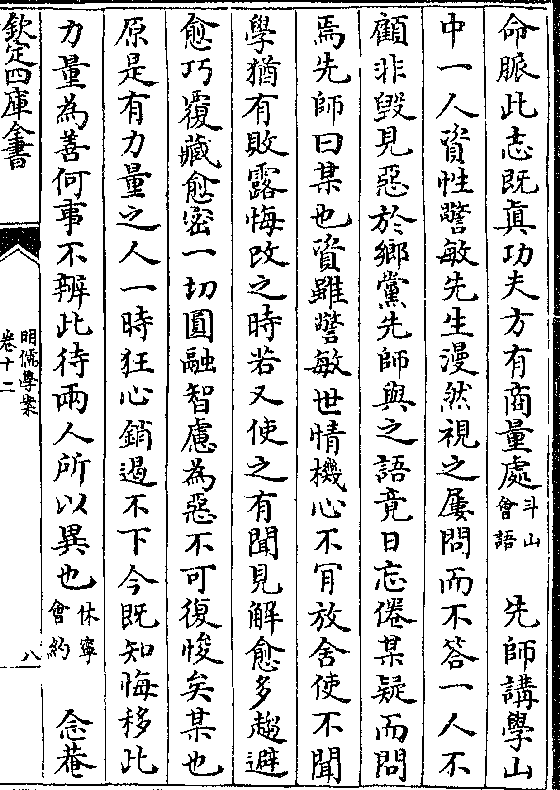 命脈此志既眞功夫方有商量處斗山會語　先師講學山
中一人資性警敏先生漫然視之屢問而不答一人不
顧非毀見惡於鄉黨先師與之語竟日忘倦某疑而問
焉先師曰某也資雖警敏世情機心不肎放舍使不聞
學猶有敗露悔改之時若又使之有聞見解愈多趨避
愈巧覆藏愈密一切圓融智慮為惡不可復悛矣某也
原是有力量之人一時狂心銷遏不下今既知悔移此
力量為善何事不辦此待兩人所以異也休寧會約　念菴
欽定四庫全書
明儒學案
卷十二
八